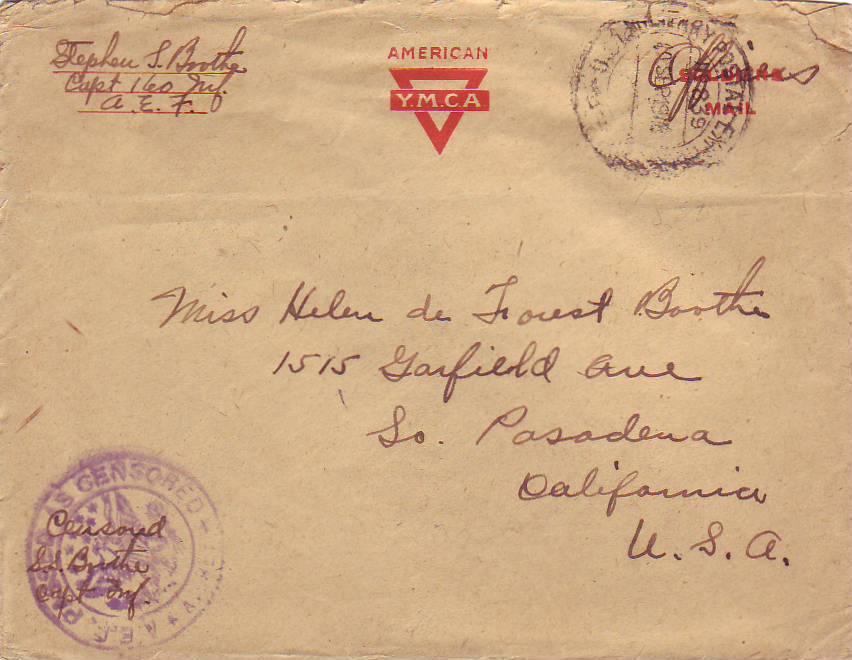 Stephen S. Boothe
Capt 160 Inf.
A. E. F.
AMERICAN
Y.M.C.A
SOLDIERS
MAIL
Officers
839
Miss Helen de Forest Boothe
1515 Garfield Ave
So. Pasadena
California
U. S. A.
PASSED AS CENSORED
A.E.F.
Censored
S.S. Boothe
Capt Inf.